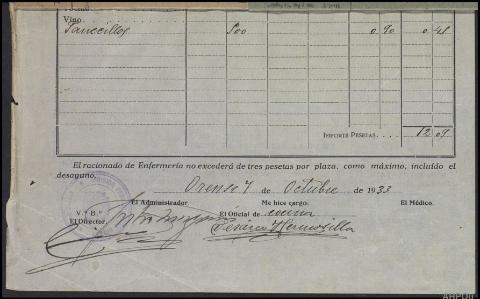 Vino
Panecillos 500 0 90 0 45
IMPORTE PESETAS. 12 09
El racionado de Enfermería no excederá de tres pesetas por plaza, como máximo, incluído el
desayuno.
Orense 7 de Octubre de 1933
El Administrador. Me hice cargo: El Médico.
V.º B.º El Oficial de cocina
El Director.